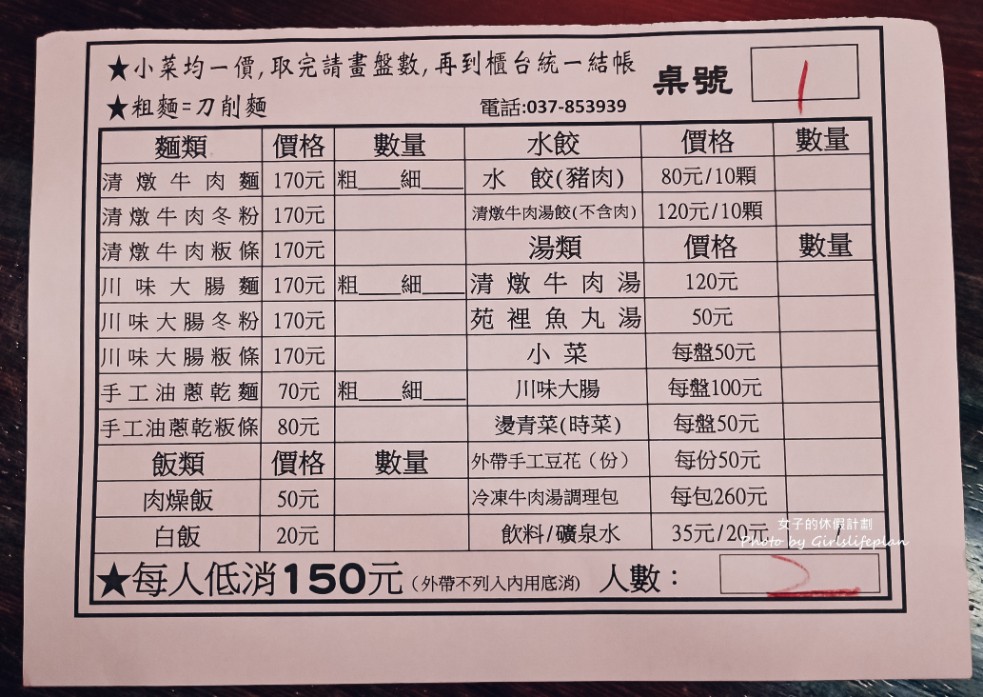 ★小菜均一價,取完請畫盤數,再到櫃台統一結帳 桌號 1
★粗麵=刀削麵 電話:037-853939
麵類 價格 數量 水餃 價格 數量
清燉牛肉麵 170元 粗____細____ 水 餃(豬肉) 80元/10顆
清燉牛肉冬粉 170元 清燉牛肉湯餃(不含肉) 120元/10顆
清燉牛肉粄條 170元 湯類 價格 數量
川味大腸麵 170元 粗____細____ 清燉牛肉湯 120元
川味大腸冬粉 170元 苑裡魚丸湯 50元
川味大腸粄條 170元 小菜 每盤50元
手工油蔥乾麵 70元 粗____細____ 川味大腸 每盤100元
手工油蔥乾粄條 80元 燙青菜(時菜) 每盤50元
飯類 價格 數量 外帶手工豆花（份） 每份50元
肉燥飯 50元 冷凍牛肉湯調理包 每包260元
白飯 20元 飲料/礦泉水 35元/20元 /
女子的休假計劃
Photo by Girlslifeplan
★每人低消150元(外帶不列入內用底消) 人數： 2